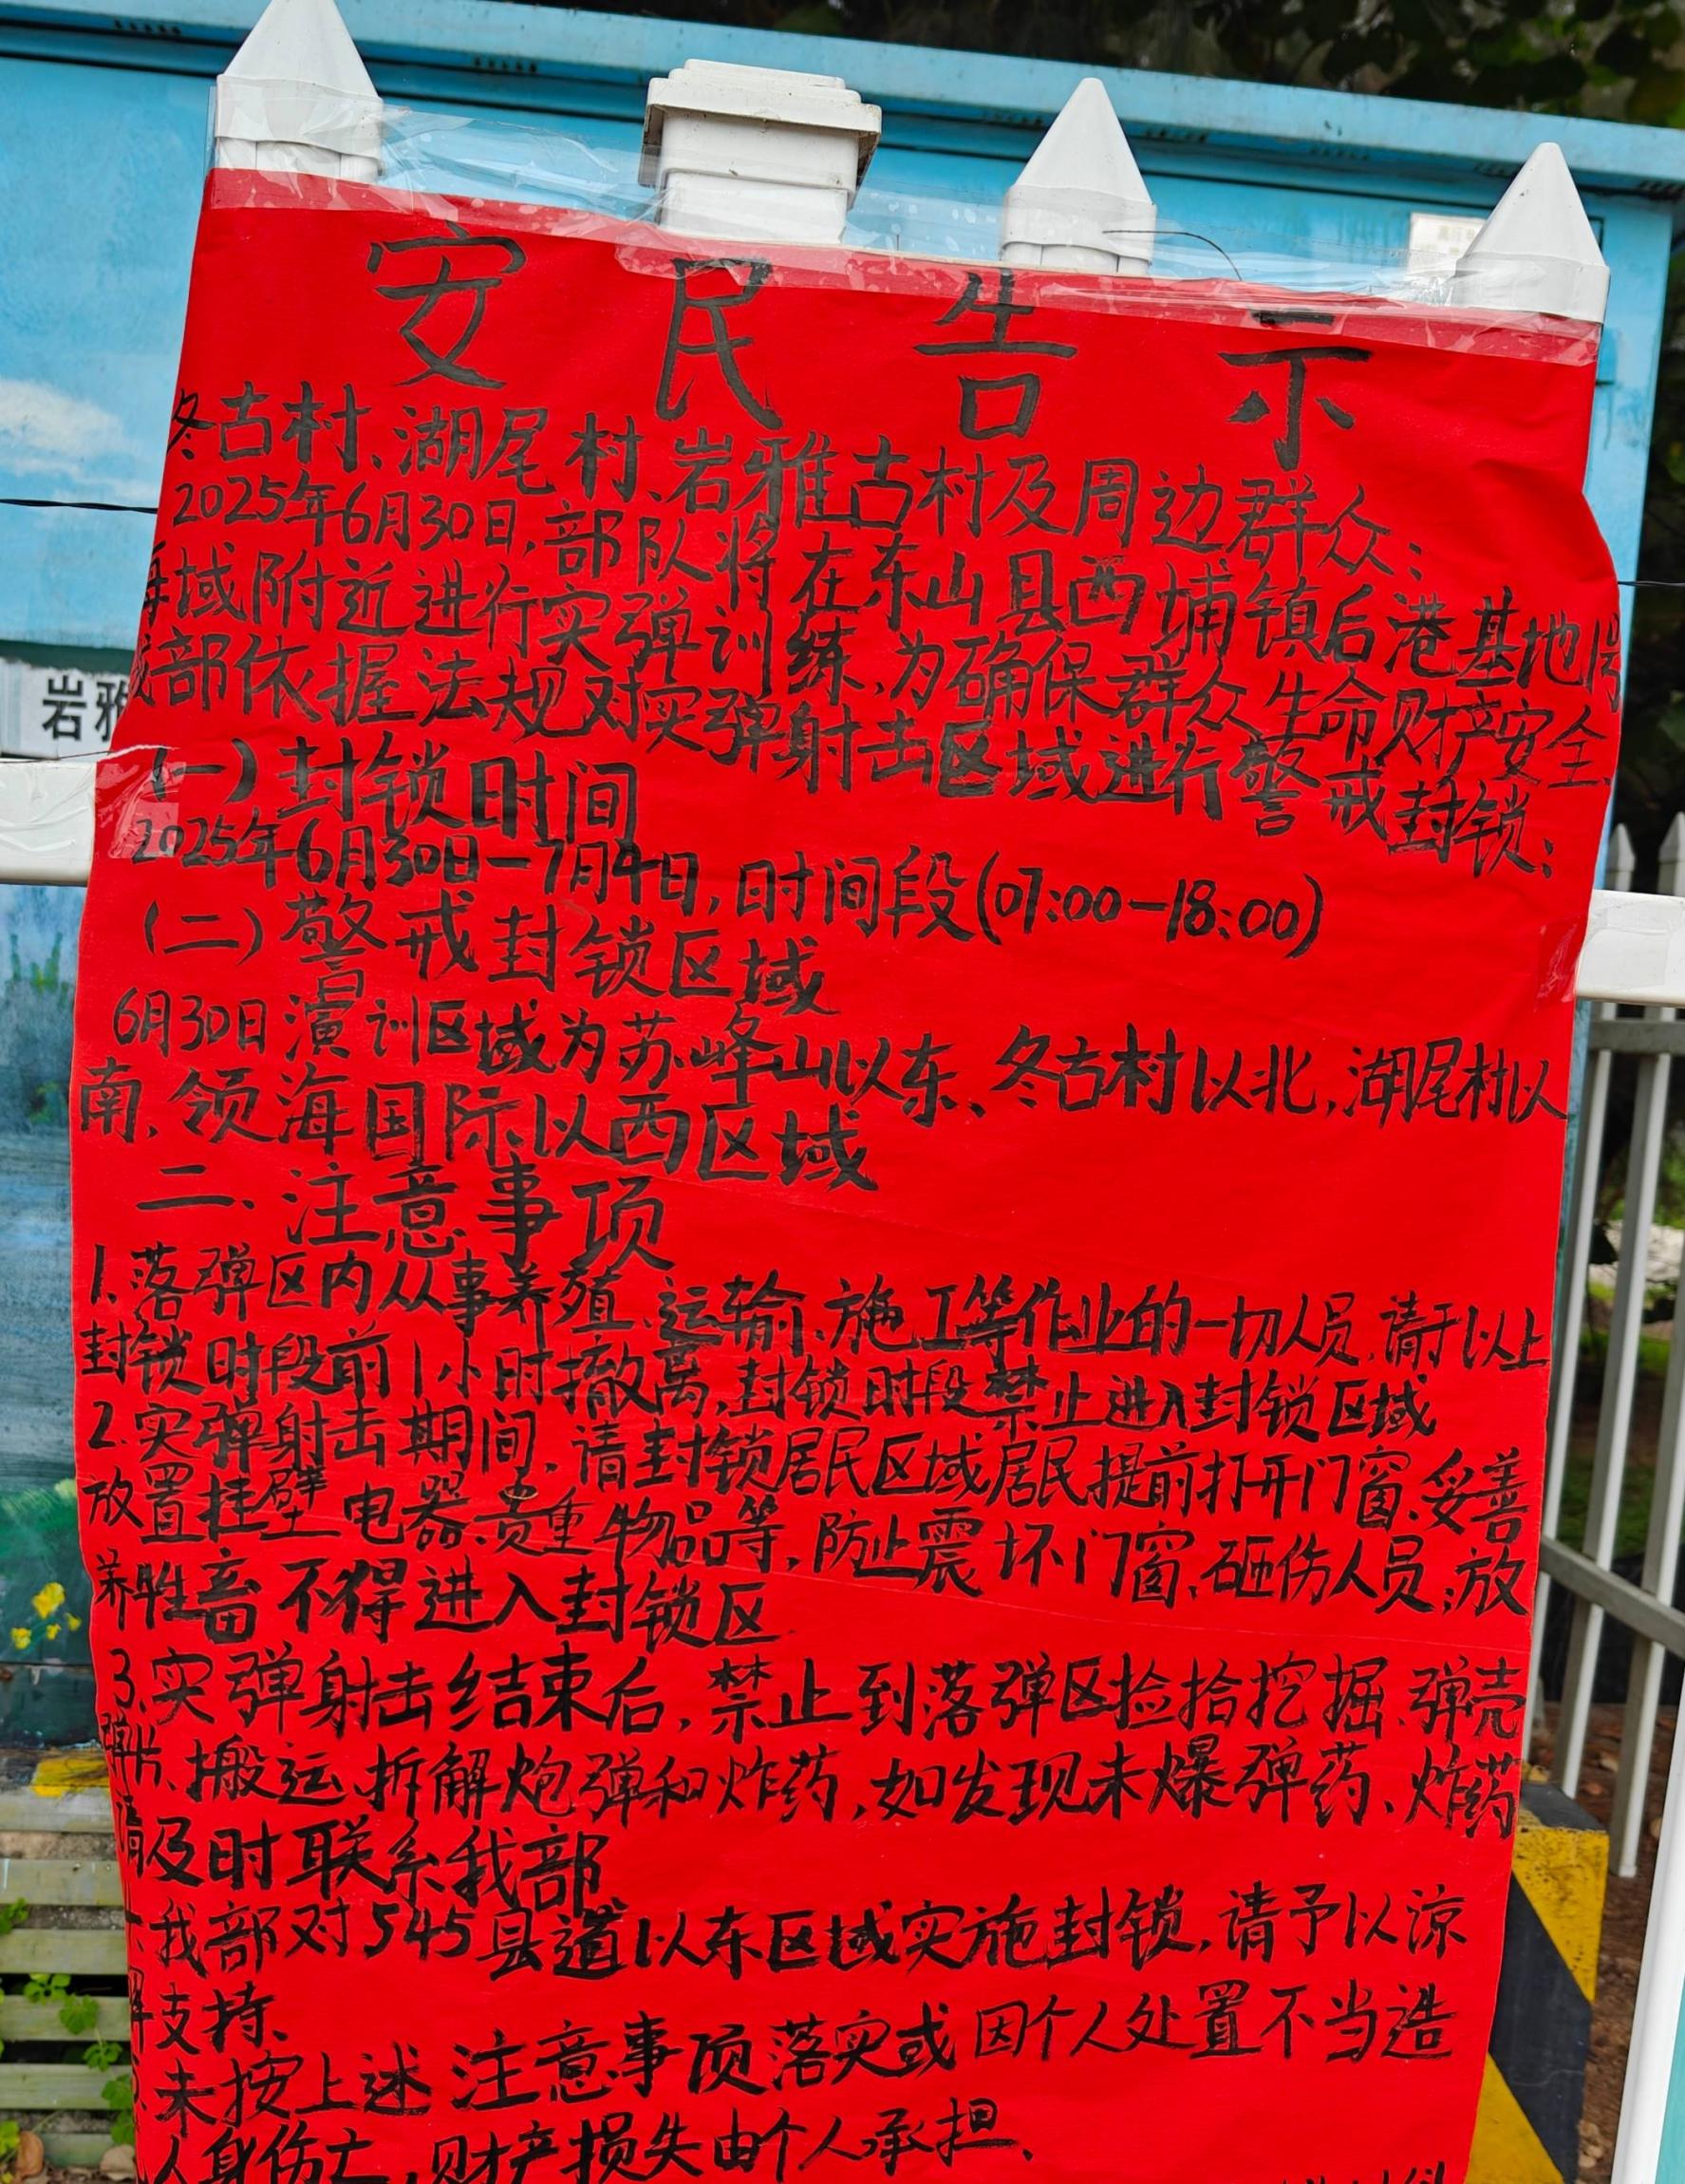 安民告示
冬古村、湖尾村、岩雅古村及周边群众:
2025年6月30日,部队将在东山县西埔镇后港基地
海域附近进行实弹训练,为确保群众生命财产安全,
我部依握法规对实弹射击区域进行警戒封锁:
(一)封锁时间
2025年6月30日—7月4日,时间段(07:00—18:00)
(二)警戒封锁区域
6月30日演训区域为苏峰山以东、冬古村以北,湖尾村以
南,领海国际以西区域
二、注意事项
1.落弹区内从事养殖、运输、施工等作业的一切人员,请于以上
封锁时段前1小时撤离,封锁时段禁止进入封锁区域
2.实弹射击期间,请封锁居民区域居民提前打开门窗、妥善
放置挂壁电器、贵重物品等,防止震坏门窗、砸伤人员;放
养牲畜不得进入封锁区
3.实弹射击结束后,禁止到落弹区捡拾挖掘、弹壳
弹片、搬运、拆解炮弹和炸药,如发现未爆弹药、炸药
请及时联系我部
我部对545县道以东区域实施封锁,请予以谅
解支持、
未按上述注意事项落实或因个人处置不当造
人身伤亡,财产损失由个人承担、
岩雅